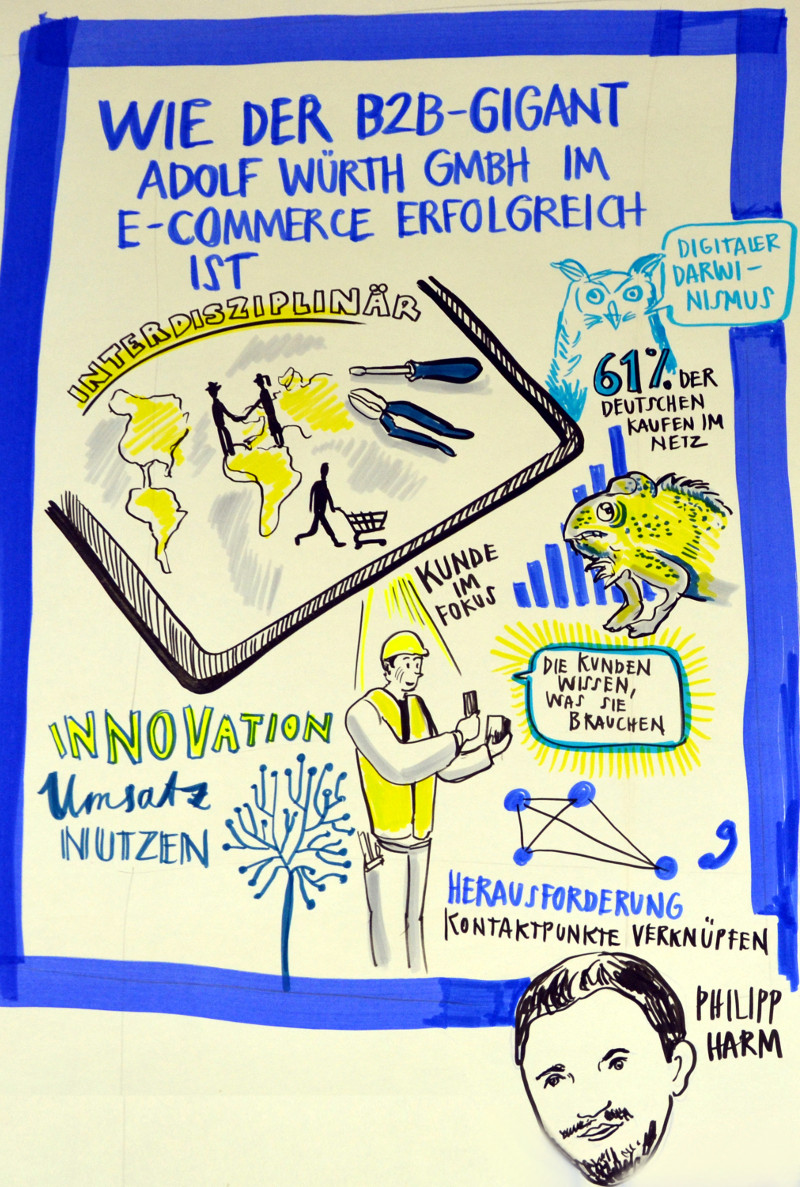 WIE DER B2B-GIGANT
ADOLF WÜRTH GMBH IM
E-COMMERCE ERFOLGREICH
IST
INTERDISZIPLINÄR
DIGITALER
DARWI-
NISMUS
61% DER
DEUTSCHEN
KAUFEN IM
NETZ
KUNDE
IM
FOKUS
DIE KUNDEN
WISSEN,
WAS SIE
BRAUCHEN
INNOVATION
Umsatz
NUTZEN
HERAUSFORDERUNG
KONTAKTPUNKTE VERKNÜPFEN
PHILIPP
HARM